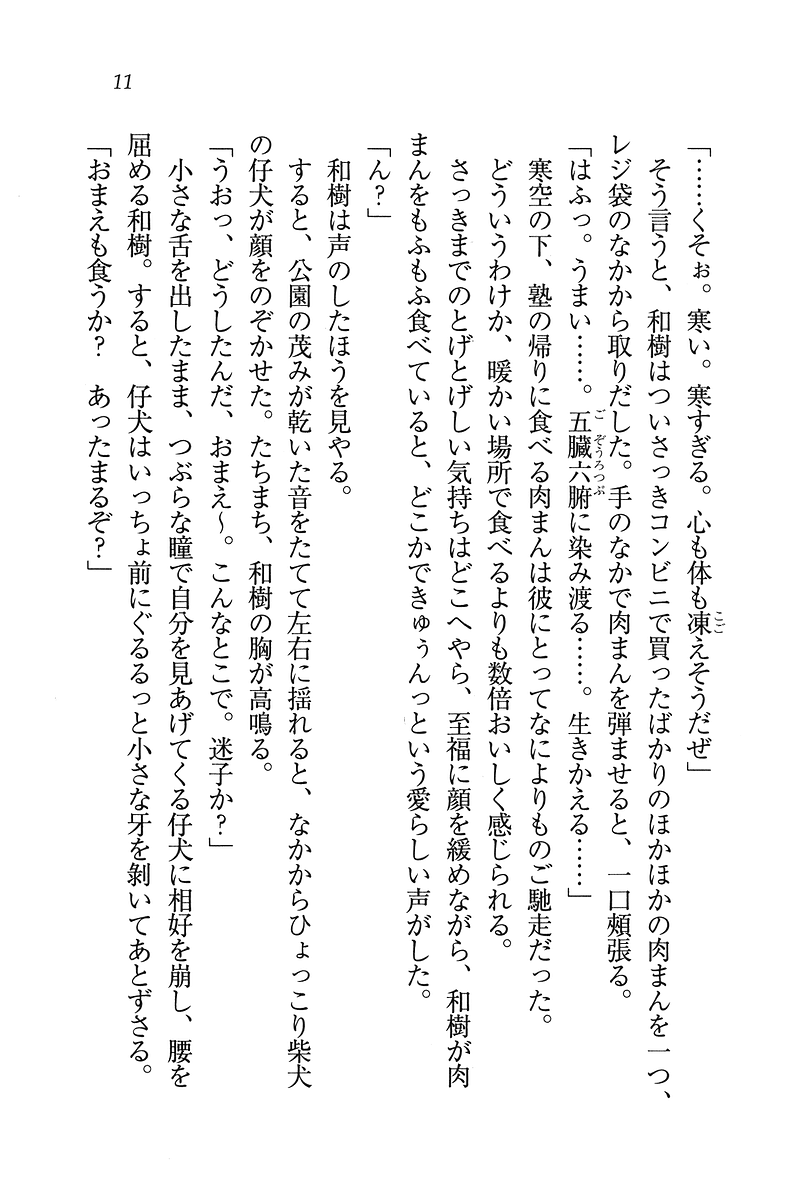 11
「……くそぉ。寒い。寒すぎる。心も体も凍えそうだぜ」
そう言うと、和樹はついさっきコンビニで買ったばかりのほかほかの肉まんを一つ、
レジ袋のなかから取りだした。手のなかで肉まんを弾ませると、一口頰張る。
「はふっ。うまい……。五臓六腑に染み渡る……。生きかえる……」
寒空の下、塾の帰りに食べる肉まんは彼にとってなによりものご馳走だった。
どういうわけか、暖かい場所で食べるよりも数倍おいしく感じられる。
さっきまでのとげとげしい気持ちはどこへやら、至福に顔を緩めながら、和樹が肉
まんをもふもふ食べていると、どこかできゅぅんっという愛らしい声がした。
「ん？」
和樹は声のしたほうを見やる。
すると、公園の茂みが乾いた音をたてて左右に揺れると、なかからひょっこり柴犬
の仔犬が顔をのぞかせた。たちまち、和樹の胸が高鳴る。
「うおっ、どうしたんだ、おまえ～。こんなとこで。迷子か？」
小さな舌を出したまま、つぶらな瞳で自分を見あげてくる仔犬に相好を崩し、腰を
屈める和樹。すると、仔犬はいっちょ前にぐるるっと小さな牙を剝いてあとずさる。
「おまえも食うか？　あったまるぞ？」